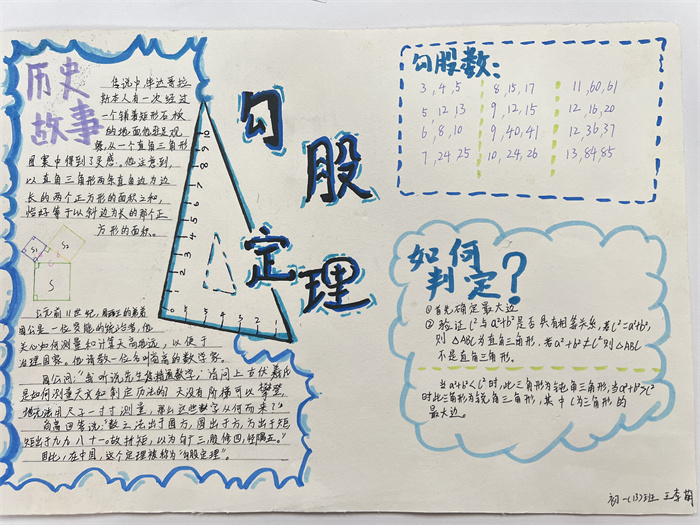 历史
故事
传说中,毕达哥拉
斯本人有一次经过
一个铺着矩形石板
的地面他看见观
察,从一个直角三角形
图案中得到了灵感。他注意到,
以直角三角形两条直角边为边
长的两个正方形的面积之和,
恰好等于以斜边为长的那个正
方形的面积。
S₁
S₂
S
公元前11世纪,
周公是一位贤能的统治者,他
关心如何测量和计算天高地远,以便于
治理国家。他请教一位名叫商高的数学家。
周公问:"我听说先生您精通数学,请问上古伏羲氏
是如何测量天文和制定历法的?天没有阶梯可以攀登,
地无法用尺子一寸寸测量,那么这些数字从何而来?"
商高回答说:"数之法出于圆方,圆出于方,方出于矩
矩出于九九八十一。故折矩,以为句广三,股修四,径隅五。"
因此,在中国,这个定理被称为"勾股定理"。
勾
股
定
理
10
9
8
7
6
5
4
3
2
1
0 5 4 3 2 1
勾股数:
3,4,5 8,15,17 11,60,61
5,12,13 9,12,15 12,16,20
6,8,10 9,40,41 12,36,37
7,24,25 10,24,26 13,84,85
如何
判定?
①首先确定最大边
②验证c²与a²+b²是否具有相等关系,若c²=a²+b²,
则△ABC为直角三角形,若a²+b²≠c²则△ABC
不是直角三角形。
当a²+b²<c²时,此三角形为钝角三角形,当a²+b²>c²
时此三角形为锐角三角形,其中c为三角形的
最大边。
初一(13)班